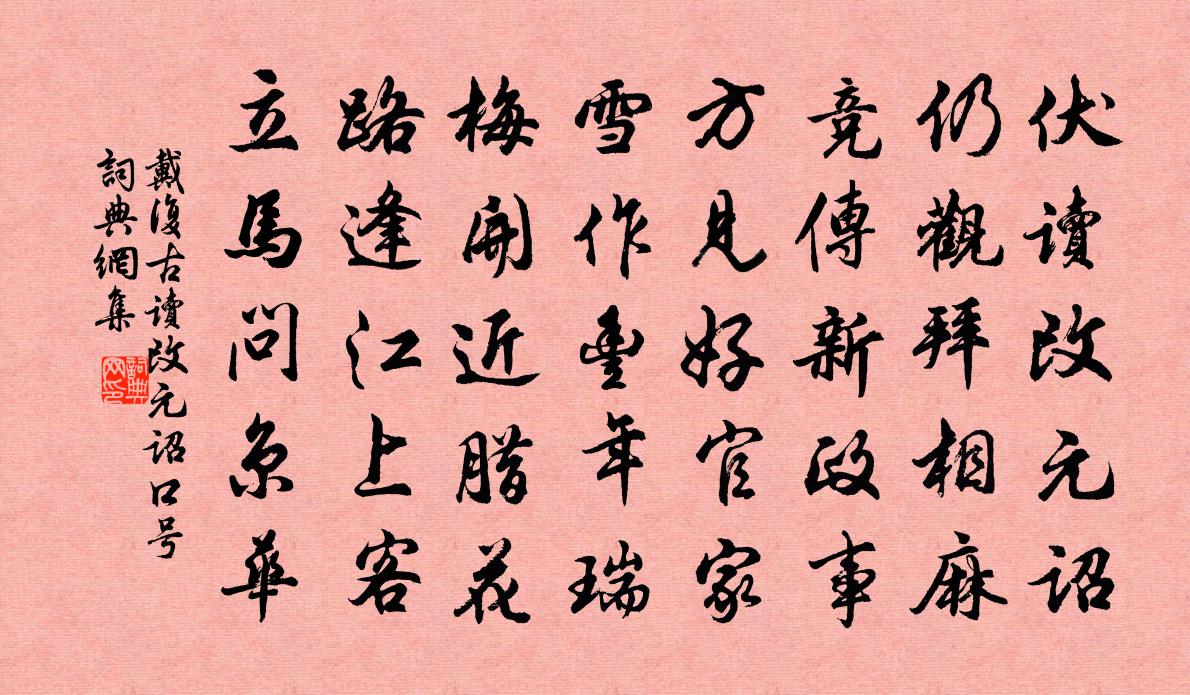 伏讀改元詔
仍觀拜相麻
竞傳新政事
方見好官家
雪作豊年瑞
梅開近腊花
路逢江上客
立馬问京華
戴復古讀改元詔口号
詞典網集
詞典网印